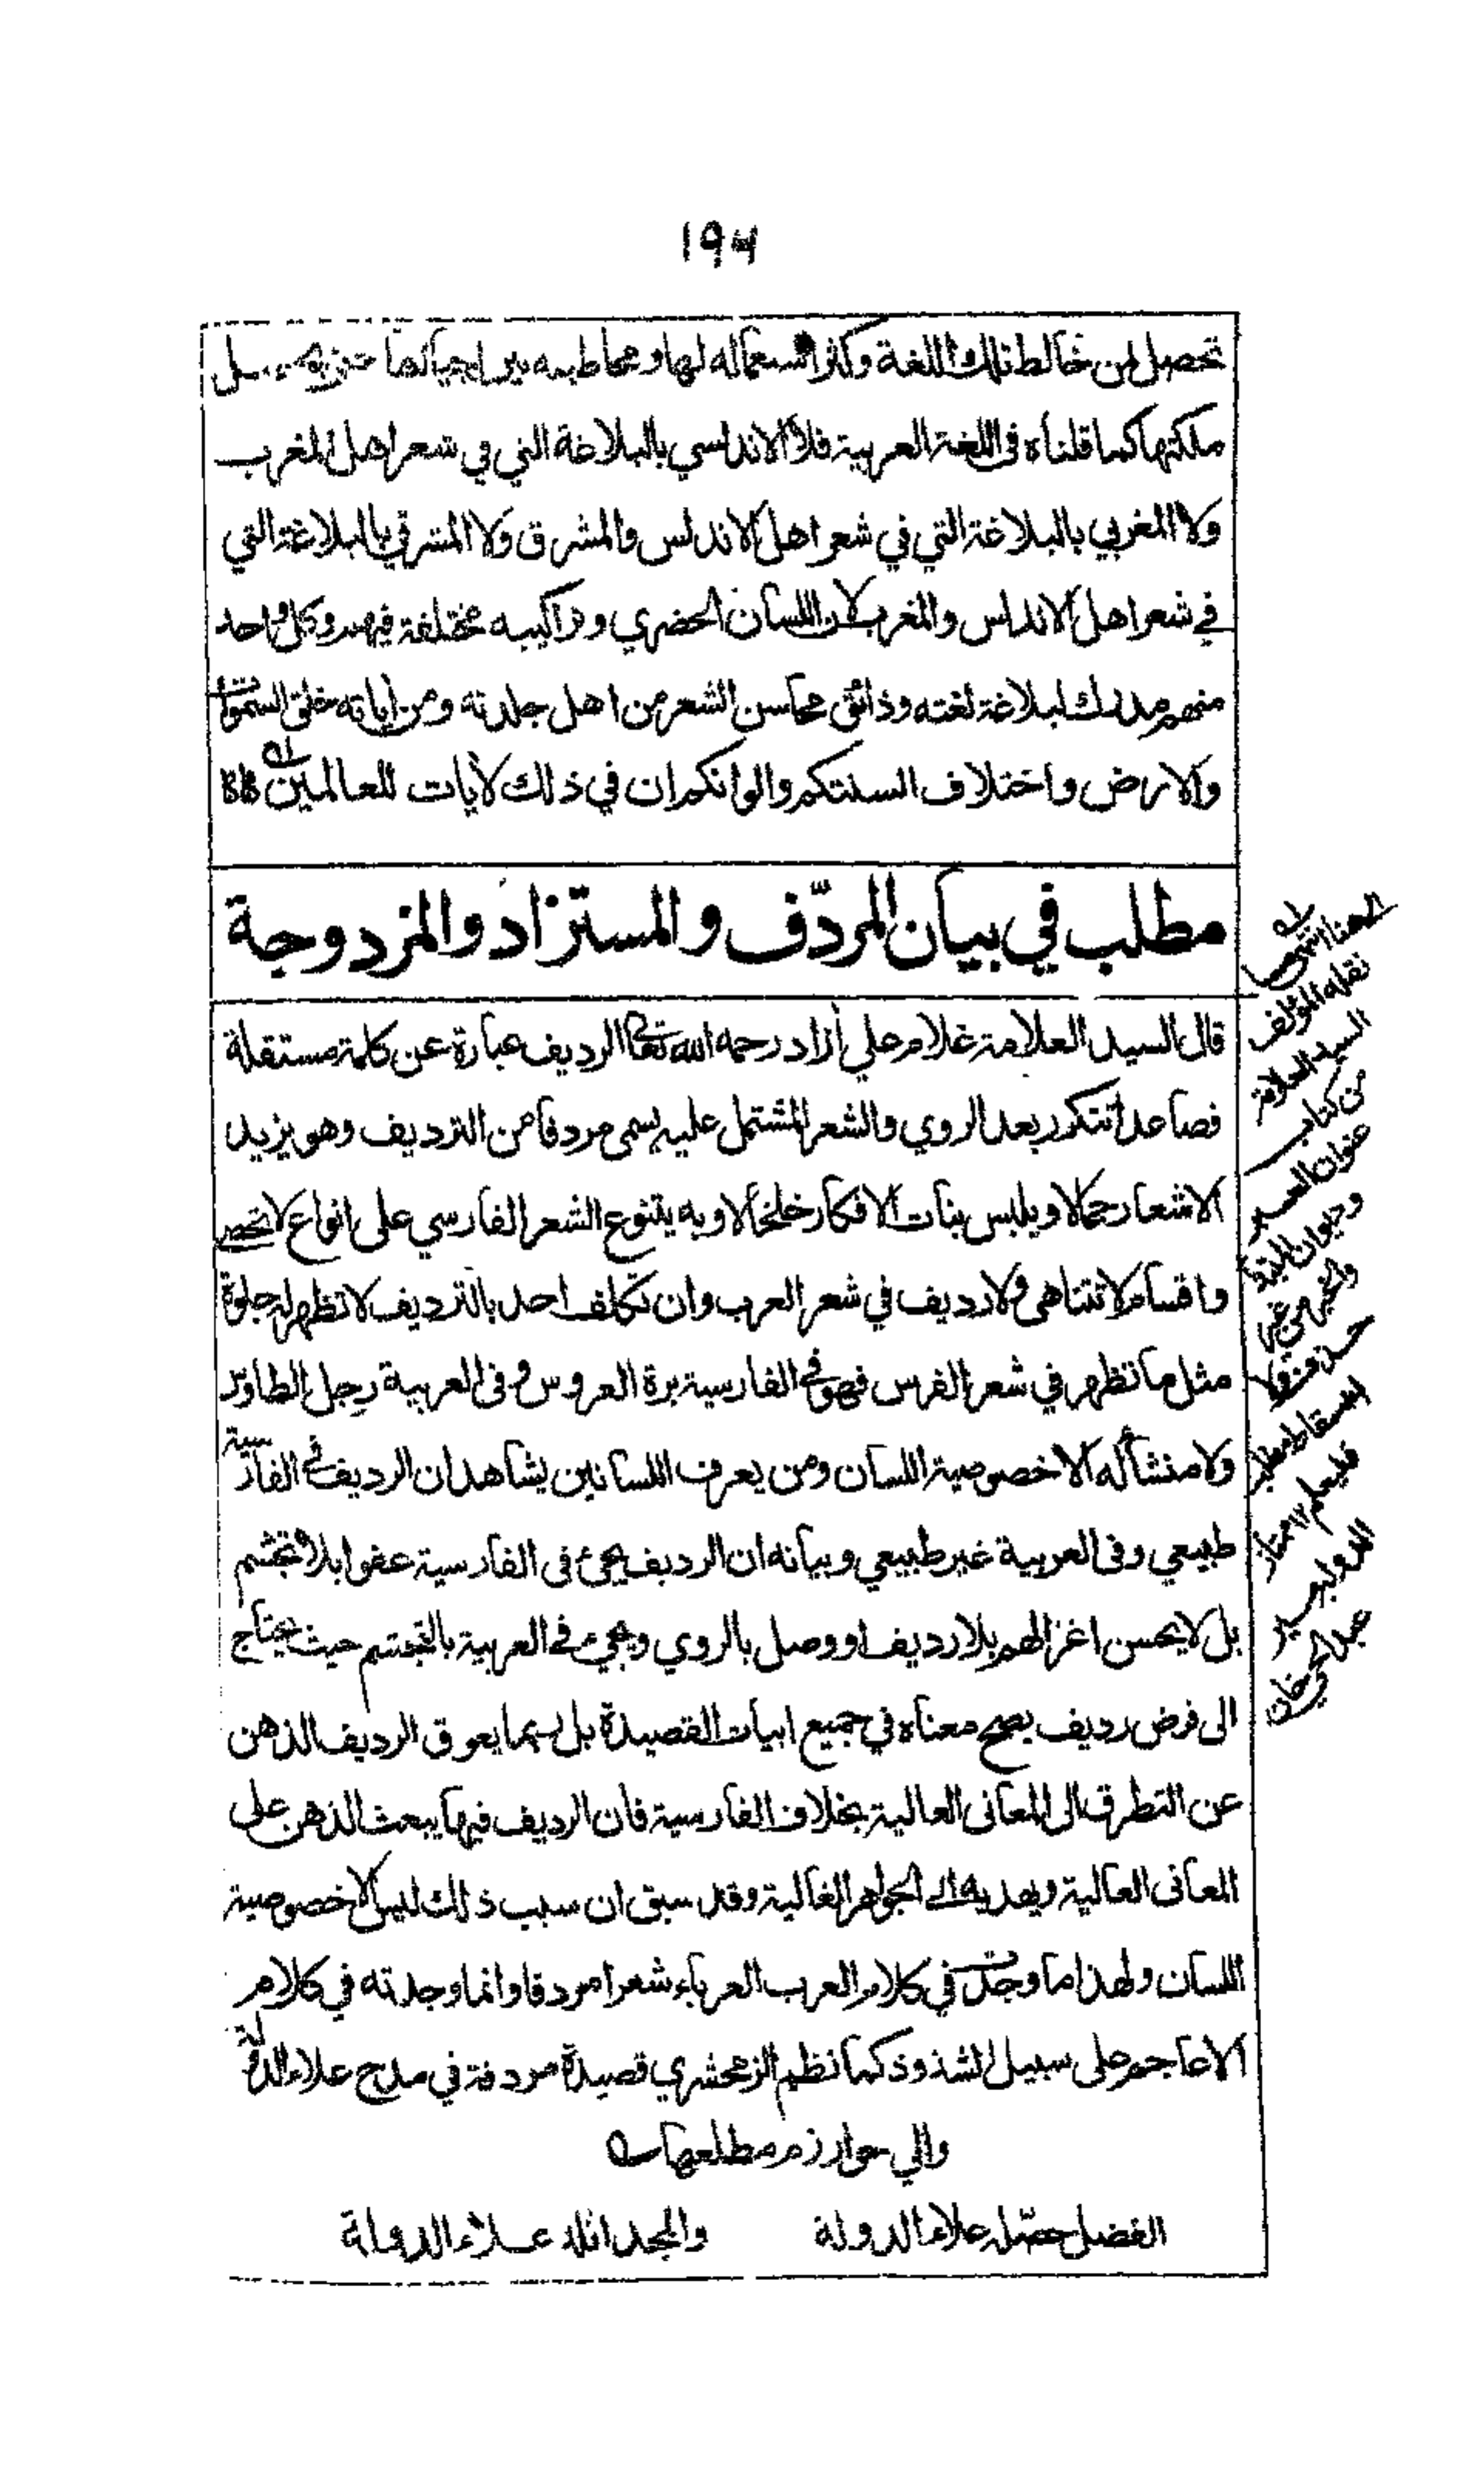 ١٩٤
تحصل لمن خالط تلك اللغة وكثر استعماله لها ومخاطبته بين اجيالها حتى يحصل
ملكتها كما قلناه فى اللغة العربية فلا الاندلسي بالبلاغة التي في شعر اهل المغرب
ولا المغربي بالبلاغة التي في شعر اهل الاندلس والمشرق ولا المشرقي بالبلاغة التي
في شعر اهل الاندلس والمغرب لان اللسان الحضري وتراكيبه مختلفة فيهم وكل واحد
منهم مدرك لبلاغة لغته وذائق محاسن الشعر من اهل جلدته ومن اٰياته خلق السمٰوٰت
والارض واختلاف السنتكم والوانكم ان في ذلك لاٰيات للعالمين
مطلب في بيان المردّف والمستزاد والمزدوجة
قال السيد العلامة غلام علي اٰزاد رحمه الله تعالى الرديف عبارة عن كلمة مستقلة
فصاعدا تتكرر بعد الروي والشعر المشتمل عليه يسمى مردفا من الترديف وهو يزيد
الاشعار جمالا ويلبس بنات الافكار خلخالا وبه يتنوع الشعر الفارسي على انواع لا تحصى
واقسام لا تتناهى ولا رديف في شعر العرب وان تكلف احد بالترديف لا تظهر له جلوة
مثل ما تظهر في شعر الفرس فهو في الفارسية برة العروس و فى العربية رجل الطاوس
ولا منشأ له الا خصوصية اللسان ومن يعرف اللسانين يشاهد ان الرديف في الفارسية
طبيعي وفى العربية غير طبيعي وبيانه ان الرديف يجئ فى الفارسية عفوا بلا تجشم
بل لا يحسن اغزالهم بلا رديف او وصل بالروي ويجيء في العربية بالتجشم حيث يحتاج
الى فرض رديف يصح معناه في جميع ابيات القصيدة بل ربما يعوق الرديف الذهن
عن التطرق الى المعانى العالية بخلاف الفارسية فان الرديف فيها يبعث الذهن على
المعانى العالية ويهديه الى الجواهر الغالية وقد سبق ان سبب ذلك ليس الا خصوصية
اللسان ولهذا ما وجدت في كلام العرب العرباء شعرا مردفا وانما وجدته في كلام
الاعاجم على سبيل الشذوذ كما نظم الزمخشري قصيدة مردفة في مدح علاء الدولة
والي خوارزم مطلعها
الفضل حصّله علاء الدولة والمجد اثله علاء الدولة
نقله المؤلف
السيد العلامة
من كتاب